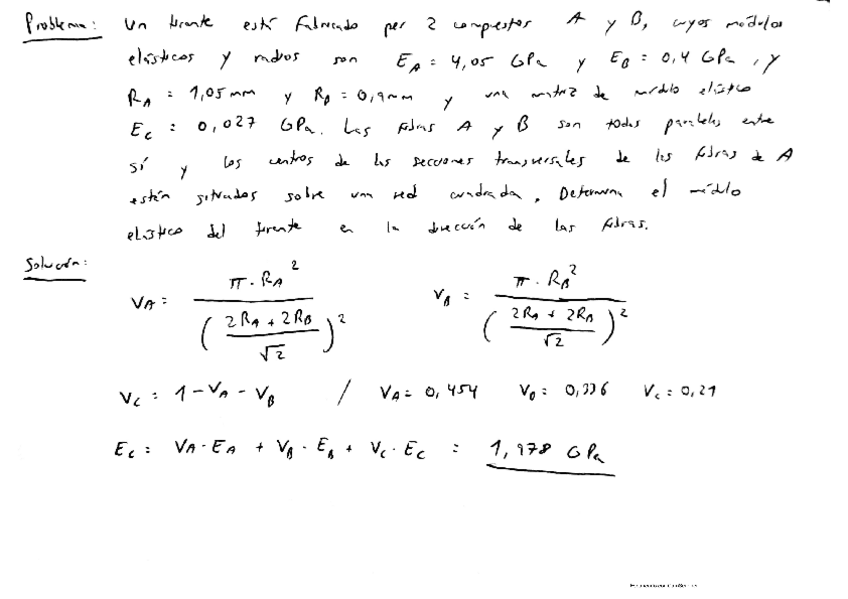 Problema: Un tirante está fabricado por 2 compuestos A y B, cuyos módulos
elásticos y radios son E_A = 4,05 GPa y E_B = 0,4 GPa, y
R_A = 1,05 mm y R_B = 0,9 mm y una matriz de módulo elástico
E_C = 0,027 GPa. Las fibras A y B son todas paralelas entre
sí y los centros de las secciones transversales de las fibras de A
están situados sobre una red cuadrada. Determina el módulo
elástico del tirante en la dirección de las fibras.
Solución:
V_A = π · R_A² / ((2R_A + 2R_B) / √2)² V_B = π · R_B² / ((2R_A + 2R_B) / √2)²
V_C = 1 - V_A - V_B / V_A = 0,454 V_B = 0,336 V_C = 0,21
E_C = V_A · E_A + V_B · E_B + V_C · E_C = 1,978 GPa